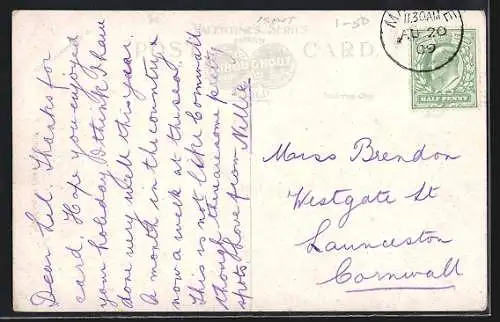 VALENTINE'S SERIES
POST CARD
1-50
11.30AM
AU 20
09
HALF PENNY
Dear Lil. Thanks for
card. Hope you enjoyed
your holiday I think I have
done very well this year.
A month in the country &
now a week at the sea.
This is not like Cornwall
though there are some pretty
spots. Love from Nellie
Miss Brendon
Westgate St
Launceston
Cornwall